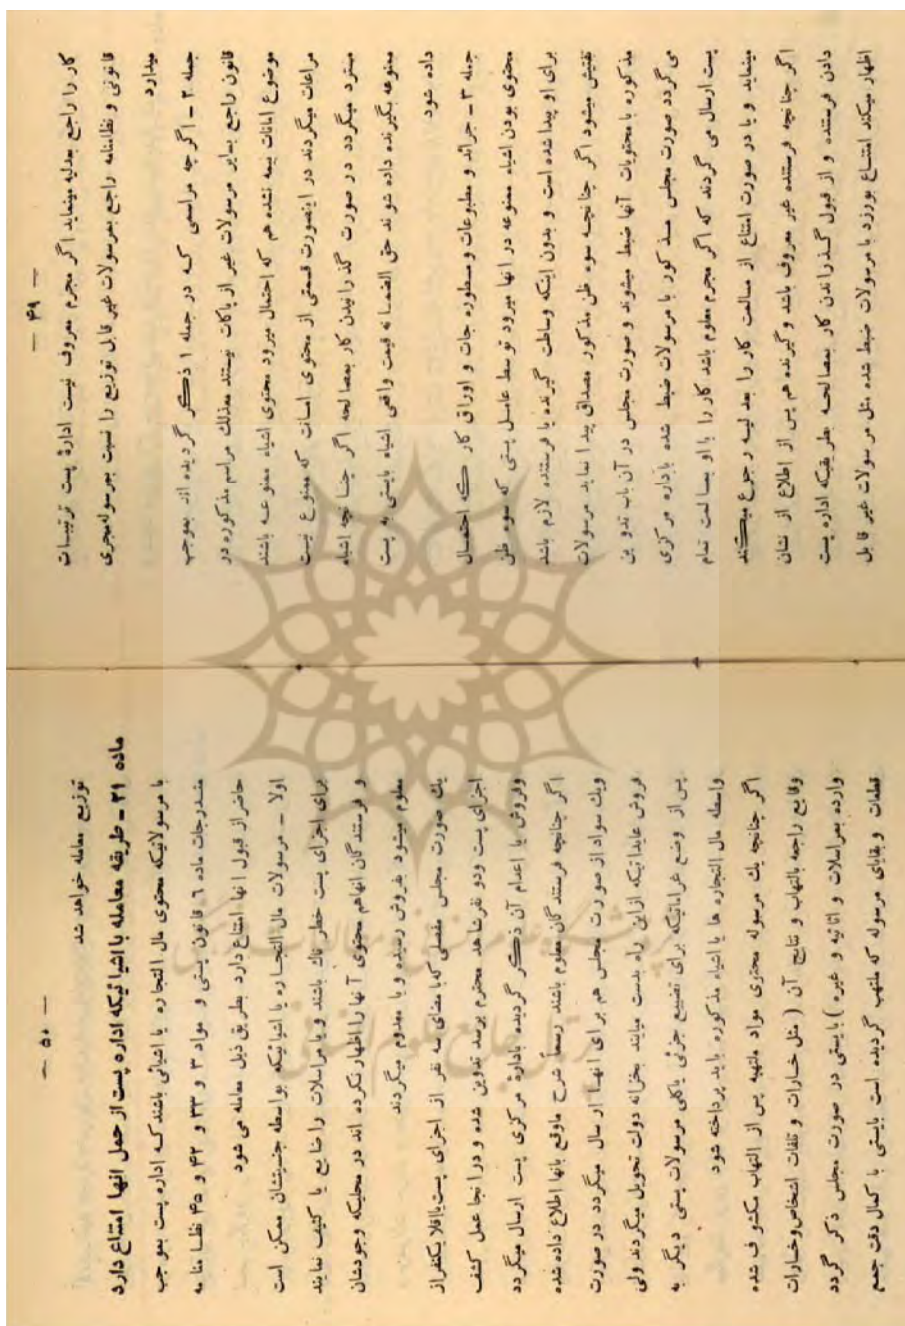 — ۴۹ —
کار را راجع بعدلیه مینماید اگر مجرم معروف نیست ادارهٔ پست ترتیبات
قانونی و نظامنامه راجع بمرسولات غیر قابل توزیع را نسبت بمرسوله مجری
میدارد
جمله ۲ – اگر چه مراسمی که در جمله ۱ ذکر گردیده اند بموجب
قانون راجع بسایر مرسولات غیر از پاکات نیستند معذلک مراسم مذکوره در
موضوع امانات بیمه نشده هم که احتمال میرود محتوی اشیاء ممنوعه باشند
مراعات میگردند در اینصورت قسمتی از محتوی امانت که ممنوع نیست
مسترد میگردد در صورت گذرانیدن کار بمصالحه اگر چنانچه اشیاء
ممنوعه بگیرنده داده شوند حق الضمانه قیمت واقعی اشیاء بایستی به پست
داده شود
جمله ۳ – جرائد و مطبوعات و مسطوره جات و اوراق کار که احتمال
محتوی بودن اشیاء ممنوعه در انها میرود توسط عامل پستی که سوء ظن
برای او پیدا شده است و بدون اینکه وساطت گیرنده یا فرستنده لازم باشد
تفتیش میشود اگر چنانچه سوء ظن مذکور مصداق پیدا نماید مرسولات
مذکوره با محتویات آنها ضبط میشوند و صورت مجلس در آن باب تدوین
می گردد صورت مجلس مذکور با مرسولات ضبط شده باداره مرکزی
پست ارسال می گردند که اگر مجرم معلوم باشد کار را با او بمسالمت تمام
مینماید و یا در صورت امتناع از مسالمت کار را بعدلیه رجوع میکند
اگر چنانچه فرستنده غیر معروف باشد و گیرنده هم پس از اطلاع از نشان
دادن فرستنده و از قبول گذراندن کار بمصالحه بطریقیکه اداره پست
اظهار میکند امتناع بورزد با مرسولات ضبط شده مثل مرسولات غیر قابل
— ۵۰ —
توزیع معامله خواهد شد
ماده ۳۱ – طریقه معامله با اشیائیکه اداره پست از حمل انها امتناع دارد
با مرسولاتیکه محتوی مال التجاره یا اشیائی باشند که اداره پست بموجب
مندرجات ماده ۶ قانون پستی و مواد ۳ و ۲۳ و ۴۲ و ۴۵ نظامنامه
حاضر از قبول انها امتناع دارد بطریق ذیل معامله می شود
اولا – مرسولات مال التجاره یا اشیائیکه بواسطه جنسیتشان ممکن است
برای اجزای پست خطر ناك باشند و یا مراسلات را ضایع یا کثیف نمایند
و فرستندگان انها هم محتوی آنها را اظهار نکرده اند در محلیکه وجودشان
معلوم میشود بفروش رسیده و یا معدوم میگردند
یك صورت مجلس مفصلی که بامضای سه نفر از اجزای پست یا اقلا یکنفر از
اجزای پست و دو نفر شاهد محترم برسد تدوین شده و در انجا عمل کشف
و فروش یا اعدام آن ذکر گردیده بادارهٔ مرکزی پست ارسال میگردد
اگر چنانچه فرستندگان معلوم باشند رسماً شرح ماوقع بانها اطلاع داده شده
و یك سواد از صورت مجلس هم برای انها ارسال میگردد در صورت
فروش عایداتیکه از این راه بدست میایند بخزانه دولت تحویل میگردند ولی
پس از وضع غراماتیکه برای تضییع جزئی یا کلی مرسولات پستی دیگر به
واسطه مال التجاره ها یا اشیاء مذکوره باید پرداخته شود
اگر چنانچه یك مرسوله محتوی مواد ملتهبه پس از التهاب مکشوف شده
وقایع راجعه بالتهاب و نتایج آن ( مثل خسارات و تلفات اشخاص و خسارات
وارده بمراسلات و اثاثیه و غیره ) بایستی در صورت مجلس ذکر گردد
قطعات و بقایای مرسوله که ملتهب گردیده است بایستی با کمال دقت جمع
پژوهشگاه علوم انسانی و مطالعات فرهنگی
پرتال جامع علوم انسانی